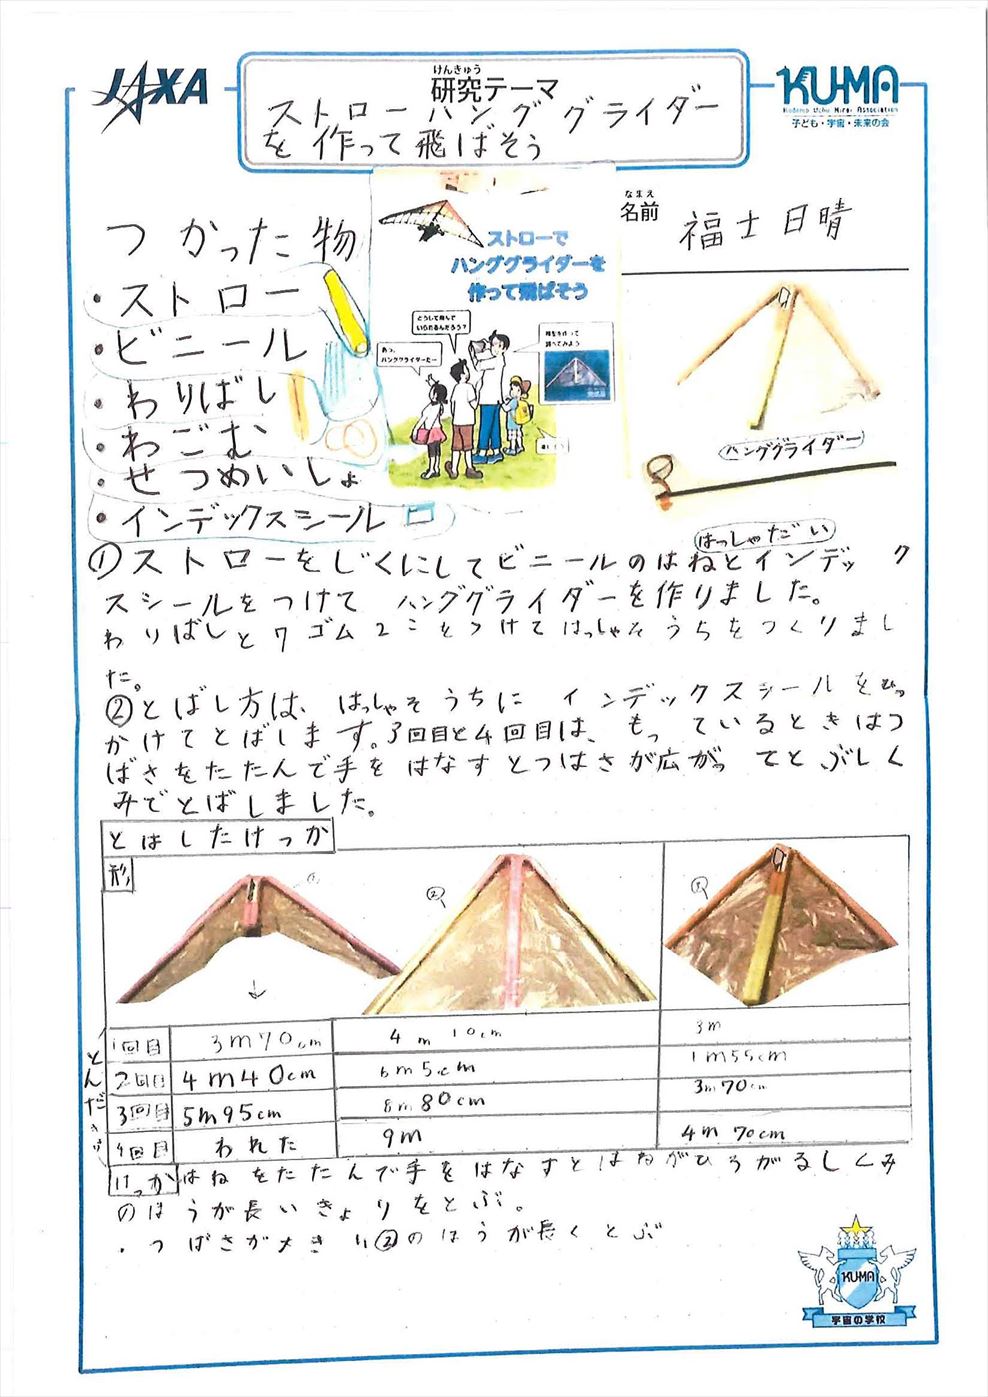 JAXA
けんきゅう
研究テーマ
ストロー ハンググライダー
を作って飛ばそう
KUMA
Kodomo Uchu Mirai Association
子ども・宇宙・未来の会
なまえ
名前
福士日晴
つかった物
・ストロー
・ビニール
・わりばし
・わごむ
・せつめいしょ
・インデックスシール
ストローで
ハンググライダーを
作って飛ばそう
どうして飛んで
いられるんだろう?
あっ、
ハンググライダーだー
模型を作って
調べてみよう
ハンググライダー
はっしゃだい
①ストローをじくにしてビニールのはねとインデック
スシールをつけて ハンググライダーを作りました。
わりばしとワゴム2ことつけてはっしゃそうちをつくりまし
た。
②とばし方は、はっしゃそうちに インデックスシールをひっ
かけてとばします。3回目と4回目は、もっているときはつ
ばさをたたんで手をはなすとつばさが広がってとぶしく
みでとばしました。
とばしたけっか
形
①
②
③
とんだきょり
1回目 3m70cm 4m10cm 3m
2回目 4m40cm 6m5cm 1m55cm
3回目 5m95cm 8m80cm 3m70cm
4回目 われた 9m 4m70cm
けっか はねをたたんで手をはなすとはねがひろがるしくみ
のほうが長いきょりをとぶ。
・つばさが大きい②のほうが長くとぶ
KUMA
宇宙の学校